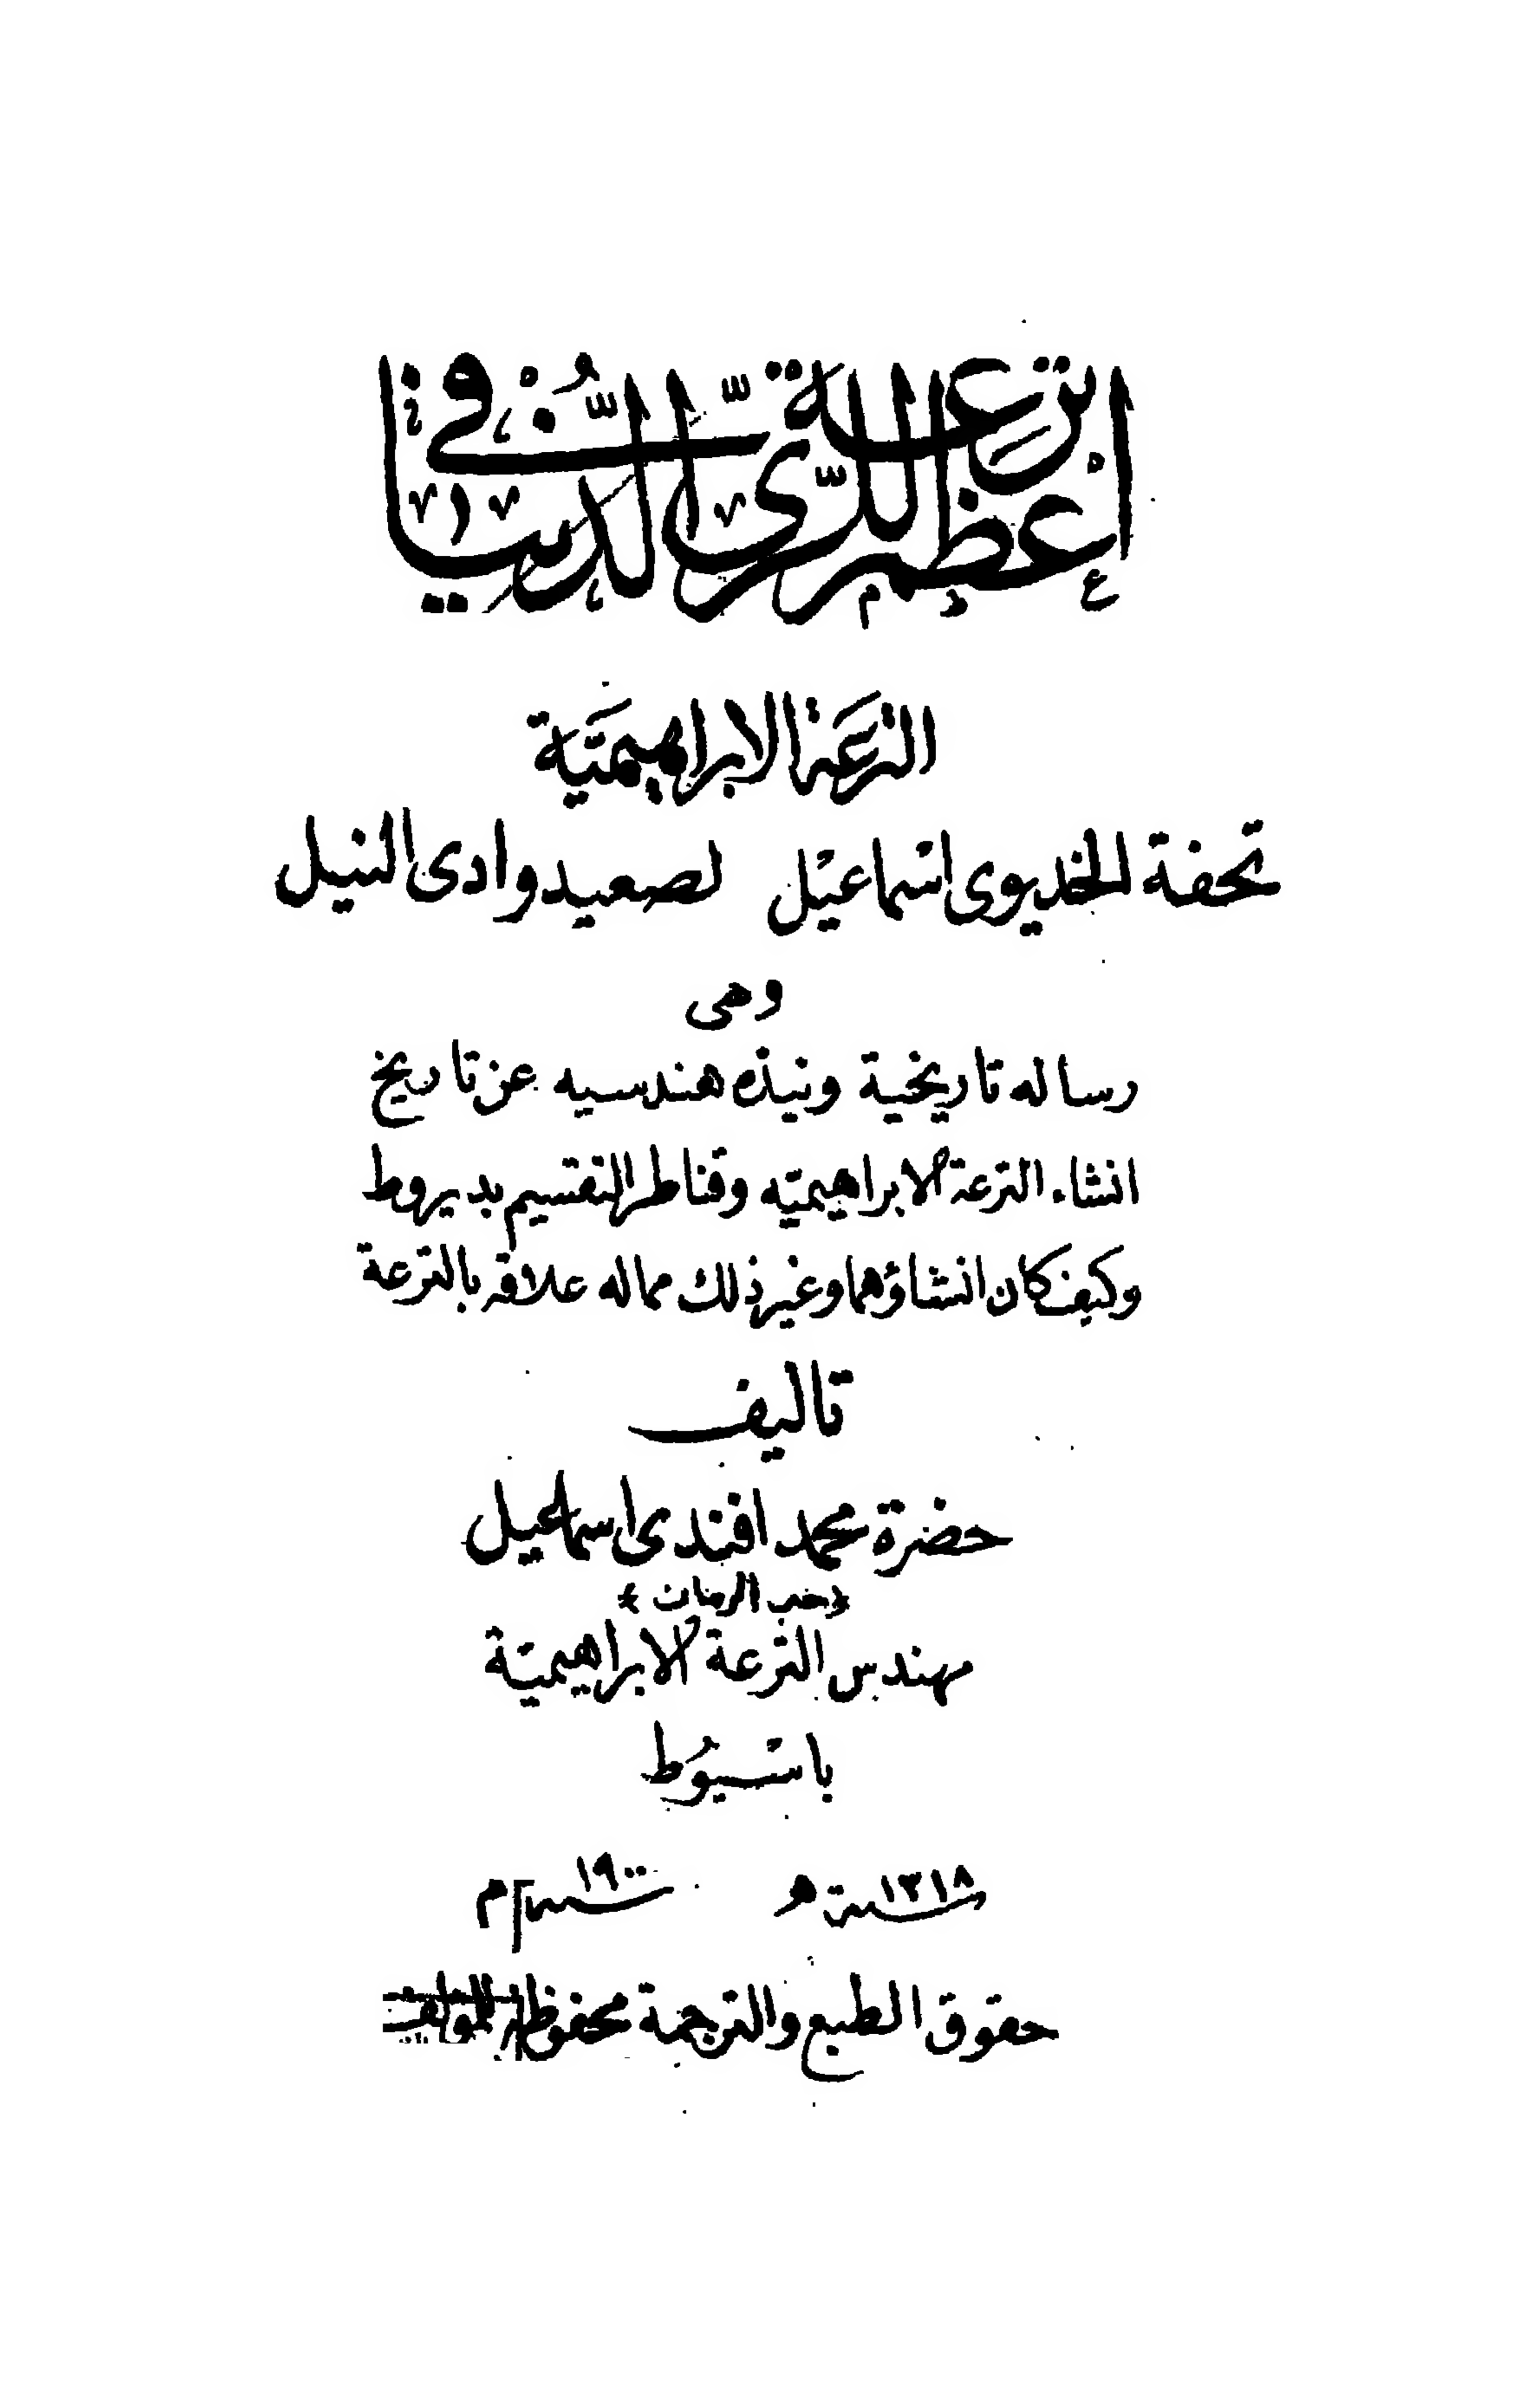 اعظم ترعة للرى فى الدنيا
الترعة الابراهيميّة
تحفة الخديوى اسماعيل لصعيد وادى النيل
وهى
رساله تاريخية ونبذه هندسيه عن تاريخ
انشاء الترعة الابراهيميّه وقناطر التقسيم بديروط
وكيف كان انشاؤهما وغير ذلك مماله علاقه بالترعة
تاليف
حضرة محمد افندى اسماعيل
مهندس الترعة الابراهيميّة
باسيوط
سنة ١٣١٨ ه سنة ١٩٠٠ م
حقوق الطبع والترجمة محفوظة للمؤلف